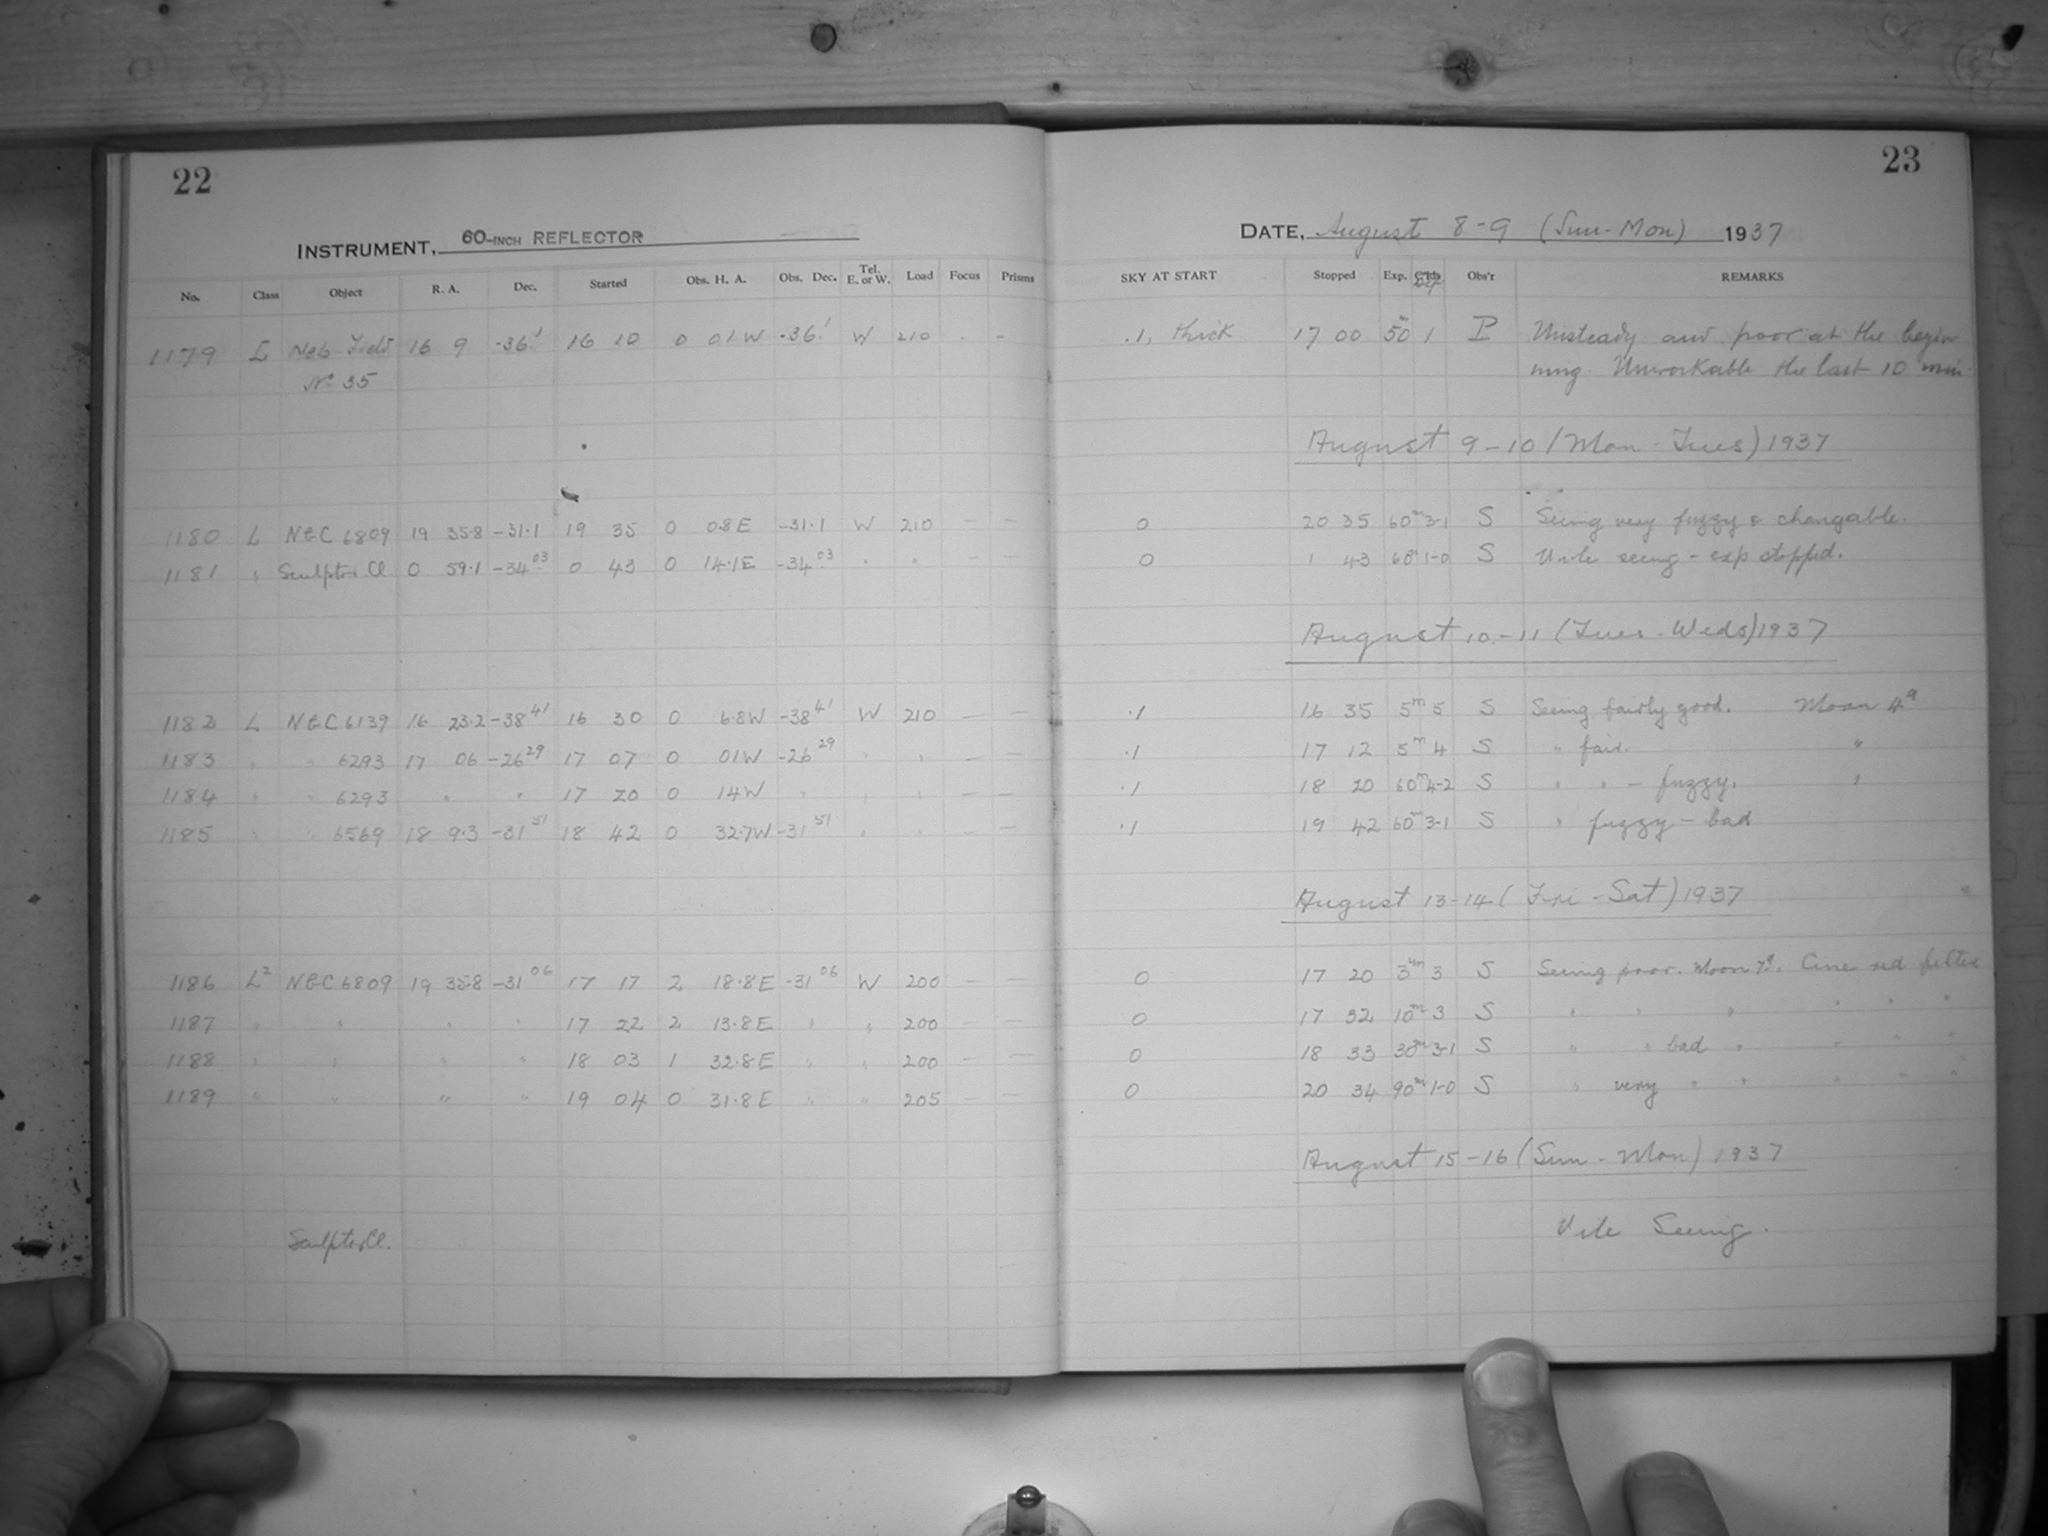 22
23
INSTRUMENT, 60-INCH REFLECTOR
DATE, August 8-9 (Sun-Mon) 1937
No. Class Object R. A. Dec. Started Obs. H. A. Obs. Dec. Tel. E. or W. Load Focus Prisms SKY AT START Stopped Exp. Obs'r REMARKS
1179 L Neb Field 16 9 -36' 16 10 0 01W -36' W 210 - - .1, thick 17 00 50m 1 P Unsteady and poor at the begin
No 35 ning. Unworkable the last 10 min
August 9-10 (Mon-Tues) 1937
1180 L NGC 6809 19 35.8 -31.1 19 35 0 0.8E -31.1 W 210 - - 0 20 35 60m 3-1 S Seeing very fuzzy & changable.
1181 " Sculptor Cl. 0 59.1 -34 03 0 43 0 14.1E -34 03 " " - - 0 1 43 60m 1-0 S Vile seeing - exp stopped.
August 10-11 (Tues-Weds) 1937
1182 L NGC 6139 16 23.2 -38 41 16 30 0 6.8W -38 41 W 210 - - .1 16 35 5m 5 S Seeing fairly good. Moon 4d
1183 " " 6293 17 06 -26 29 17 07 0 01W -26 29 " " - - .1 17 12 5m 4 S " fair. "
1184 " " 6293 " " 17 20 0 14W " " " - - .1 18 20 60m 4-2 S " " - fuzzy. "
1185 " " 6569 18 9.3 -31 51 18 42 0 32.7W -31 51 " " - - .1 19 42 60m 3-1 S " fuzzy - bad
August 13-14 (Fri-Sat) 1937
1186 L2 NGC 6809 19 35.8 -31 06 17 17 2 18.8E -31 06 W 200 - - 0 17 20 3m 3 S Seeing poor. Moon 7d. Cine red filter
1187 " " " " 17 22 2 13.8E " " 200 - - 0 17 32 10m 3 S " " " " " "
1188 " " " " 18 03 1 32.8E " " 200 - - 0 18 33 30m 3-1 S " " bad " " " "
1189 " " " " 19 04 0 31.8E " " 205 - - 0 20 34 90m 1-0 S " very " " " " "
August 15-16 (Sun-Mon) 1937
Sculptor Cl. Vile Seeing.